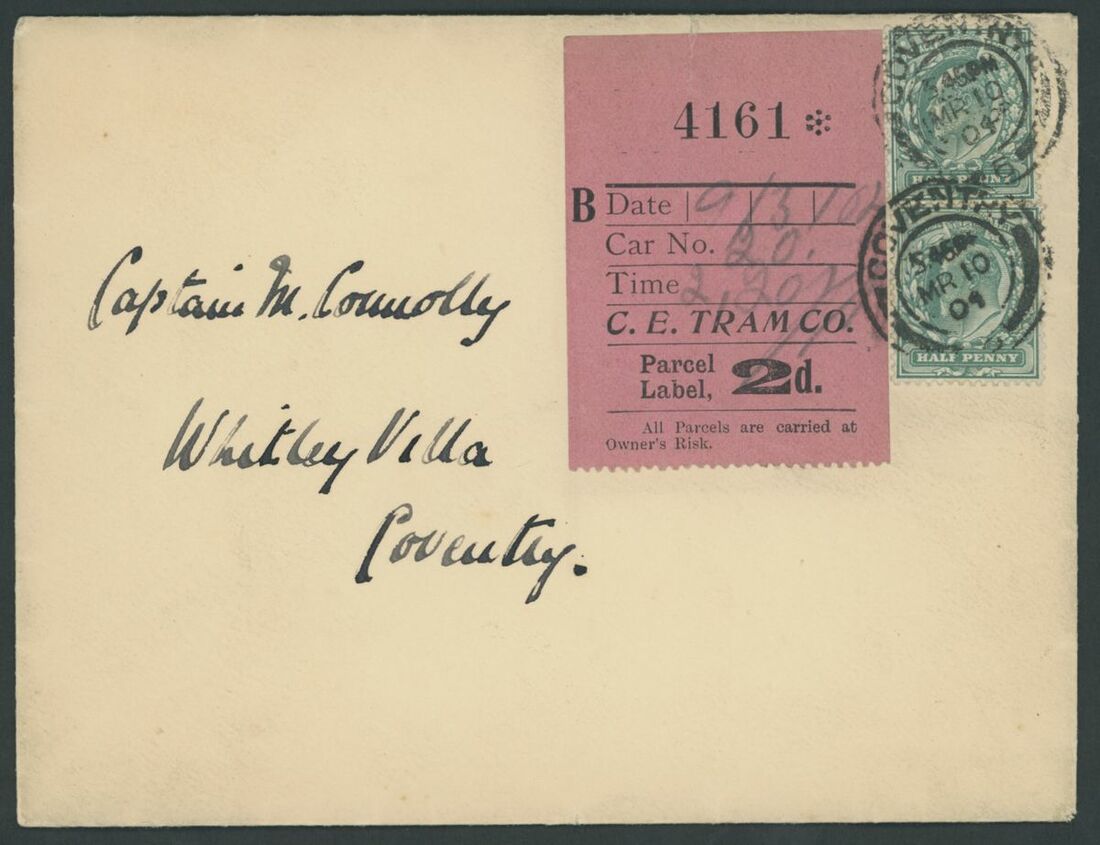 4161 ❉
B Date 9/3/09
Car No. 20.
Time 2.20
C. E. TRAM CO.
Parcel
Label, 2d.
All Parcels are carried at
Owner's Risk.
COVENTRY
5.45PM
MR 10
09
HALF PENNY
COVENTRY
5.45PM
MR 10
09
HALF PENNY
Captain M. Connolly
Whitley Villa
Coventry.